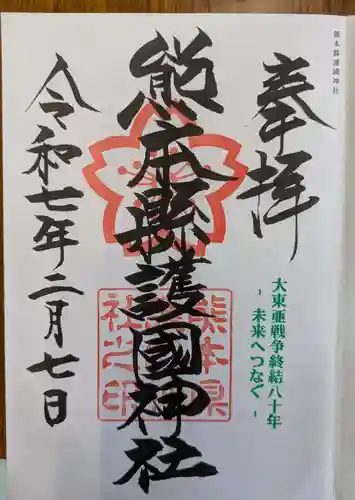 熊本縣護國神社
奉拝
大東亜戦争終結八十年
- 未来へつなぐ -
熊本縣護國神社
熊本県
社之印
令和七年二月七日